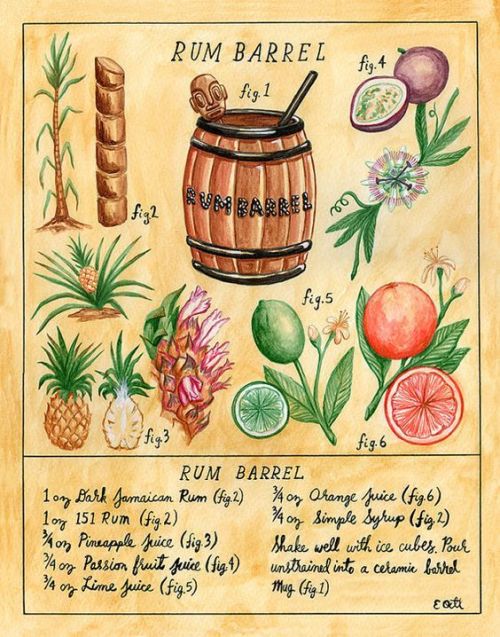 RUM BARREL
fig.1
fig.4
RUM BARREL
fig2
fig.5
fig.3
fig.6
RUM BARREL
1 oz Dark Jamaican Rum (fig.2)
1 oz 151 Rum (fig.2)
3/4 oz Pineapple juice (fig.3)
3/4 oz Passion fruit juice (fig.4)
3/4 oz Lime juice (fig.5)
3/4 oz Orange juice (fig.6)
3/4 oz Simple Syrup (fig.2)
Shake well with ice cubes. Pour
unstrained into a ceramic barrel
mug (fig.1)